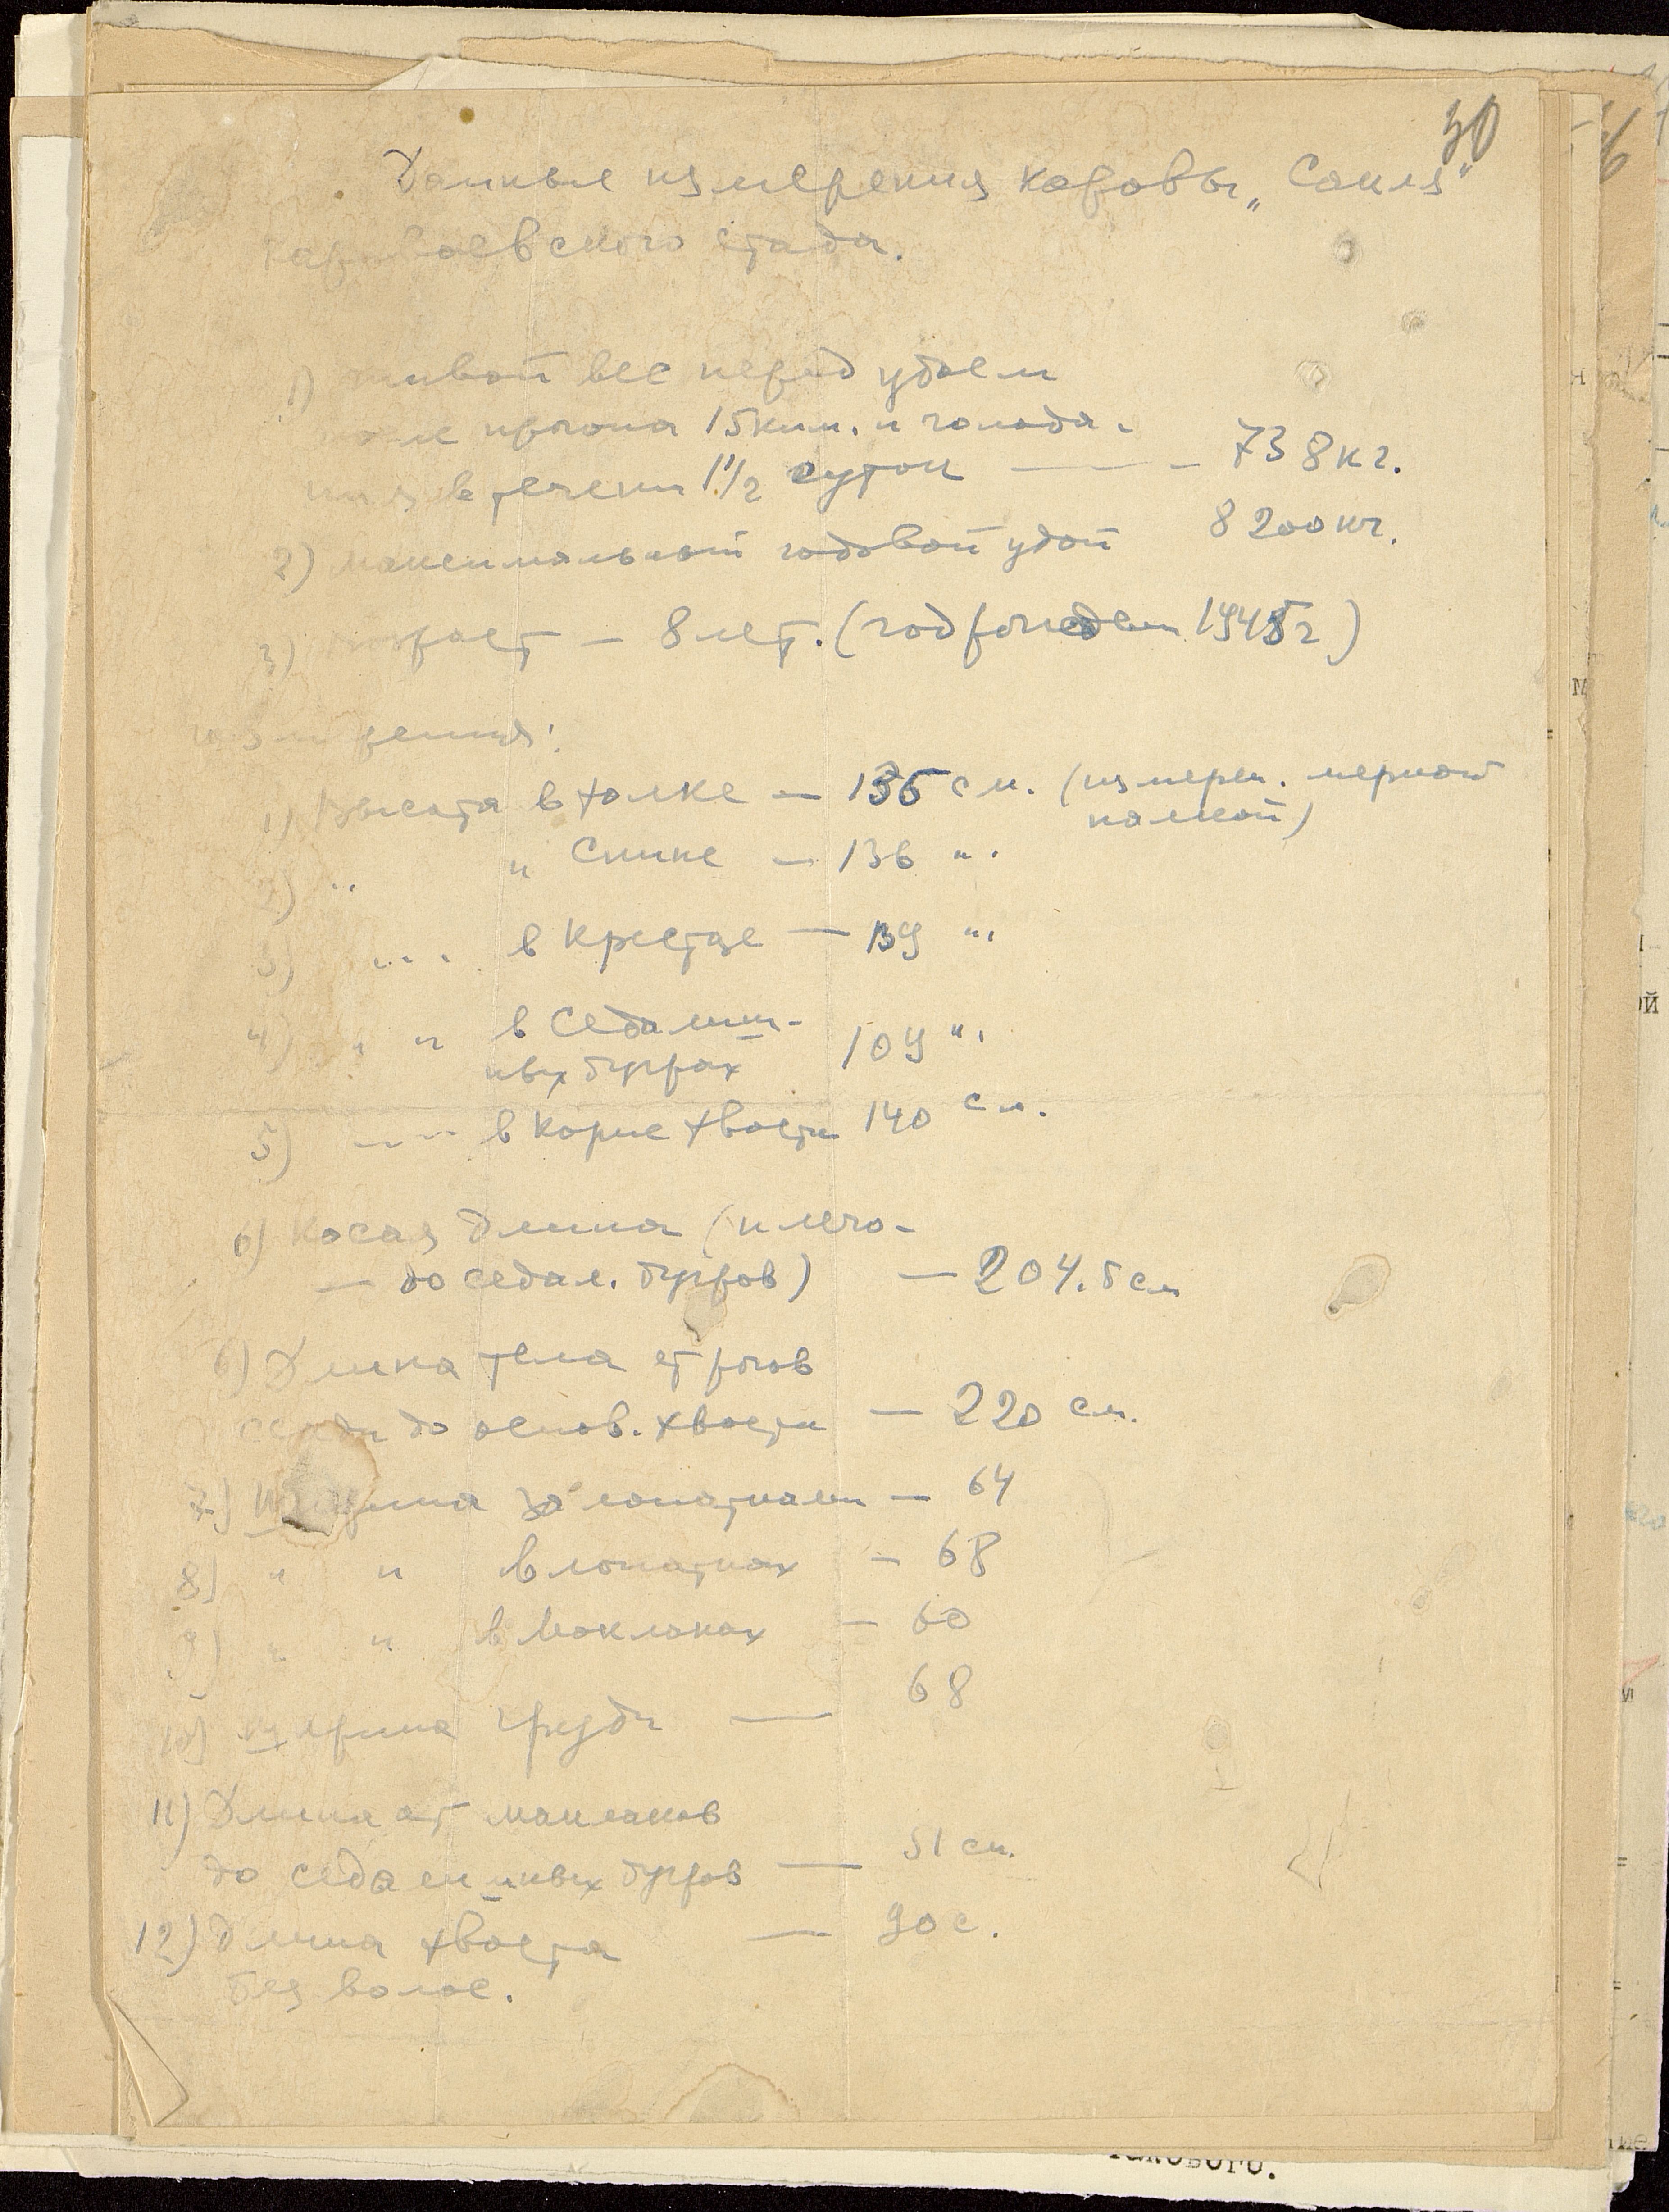 30
Данные измерения коровы „Саня"
караваевского стада.
1) живой вес перед убоем
после прогона 15 км. и голода-
ния в течени 1 1/2 суток — 738 кг.
2) Максимальный годовой удой 8200 кг.
3) возраст — 8 лет. (год рожден 1945 г)
измерения:
1) Высота в холке — 136 см. (измерен. мерной
палкой)
2) " " спине — 136 "
3) " " в крестце — 139 "
4) " " в седалищ-
ных буграх 109 "
5) " " в корне хвоста 140 см.
6) Косая длина (плечо-
— до седал. бугров) — 204.5 см
6) Длина тела от рогов
сзади до основ. хвоста — 220 см.
7) Ширина за лопатками — 64
8) " " в лопатках — 68
9) " " в маклоках — 60
10) Ширина груди — 68
11) Длина от маклаков
до седалищных бугров — 51 см.
12) Длина хвоста — 90 с.
без волос.
такового.